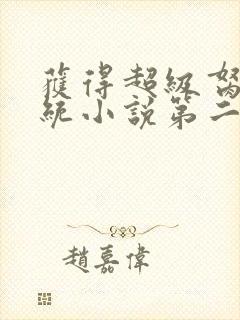 獲得超級
統小說第二
趙嘉偉